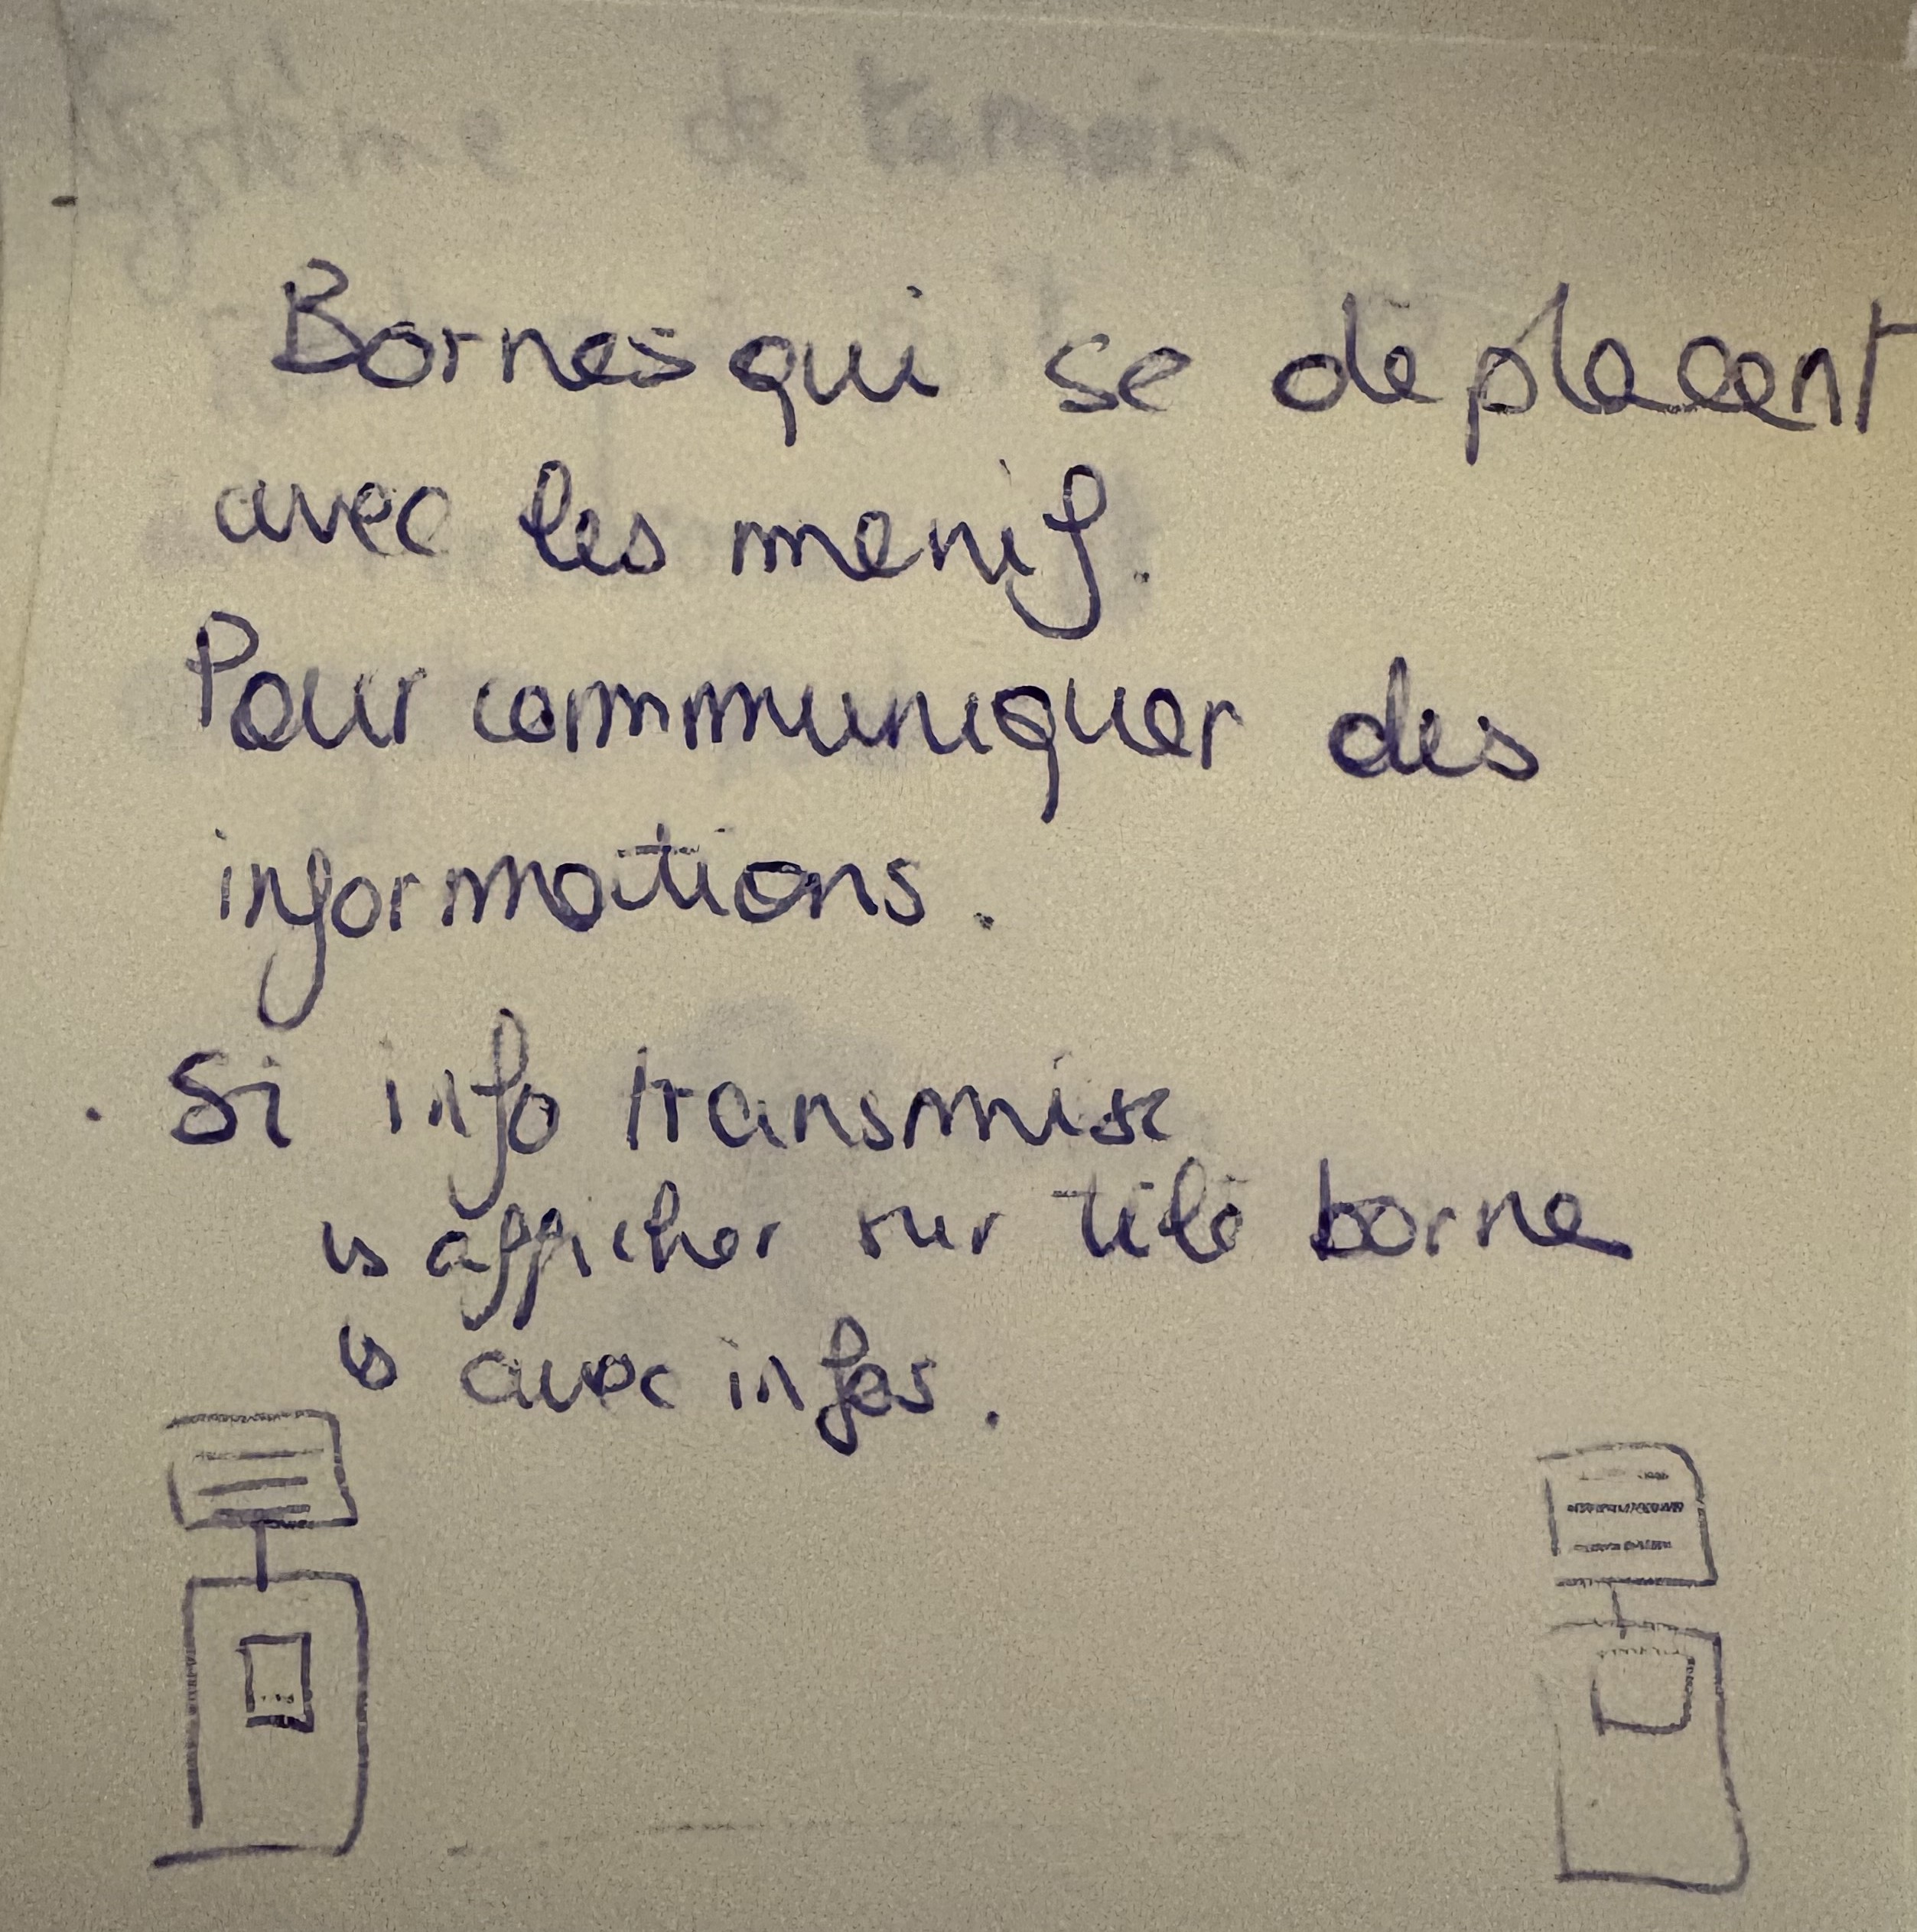 Système de
Bornes qui se déplacent
avec les manif.
Pour communiquer des
informations.
. Si info transmise
↳ afficher sur télé borne
↳ avec infos.